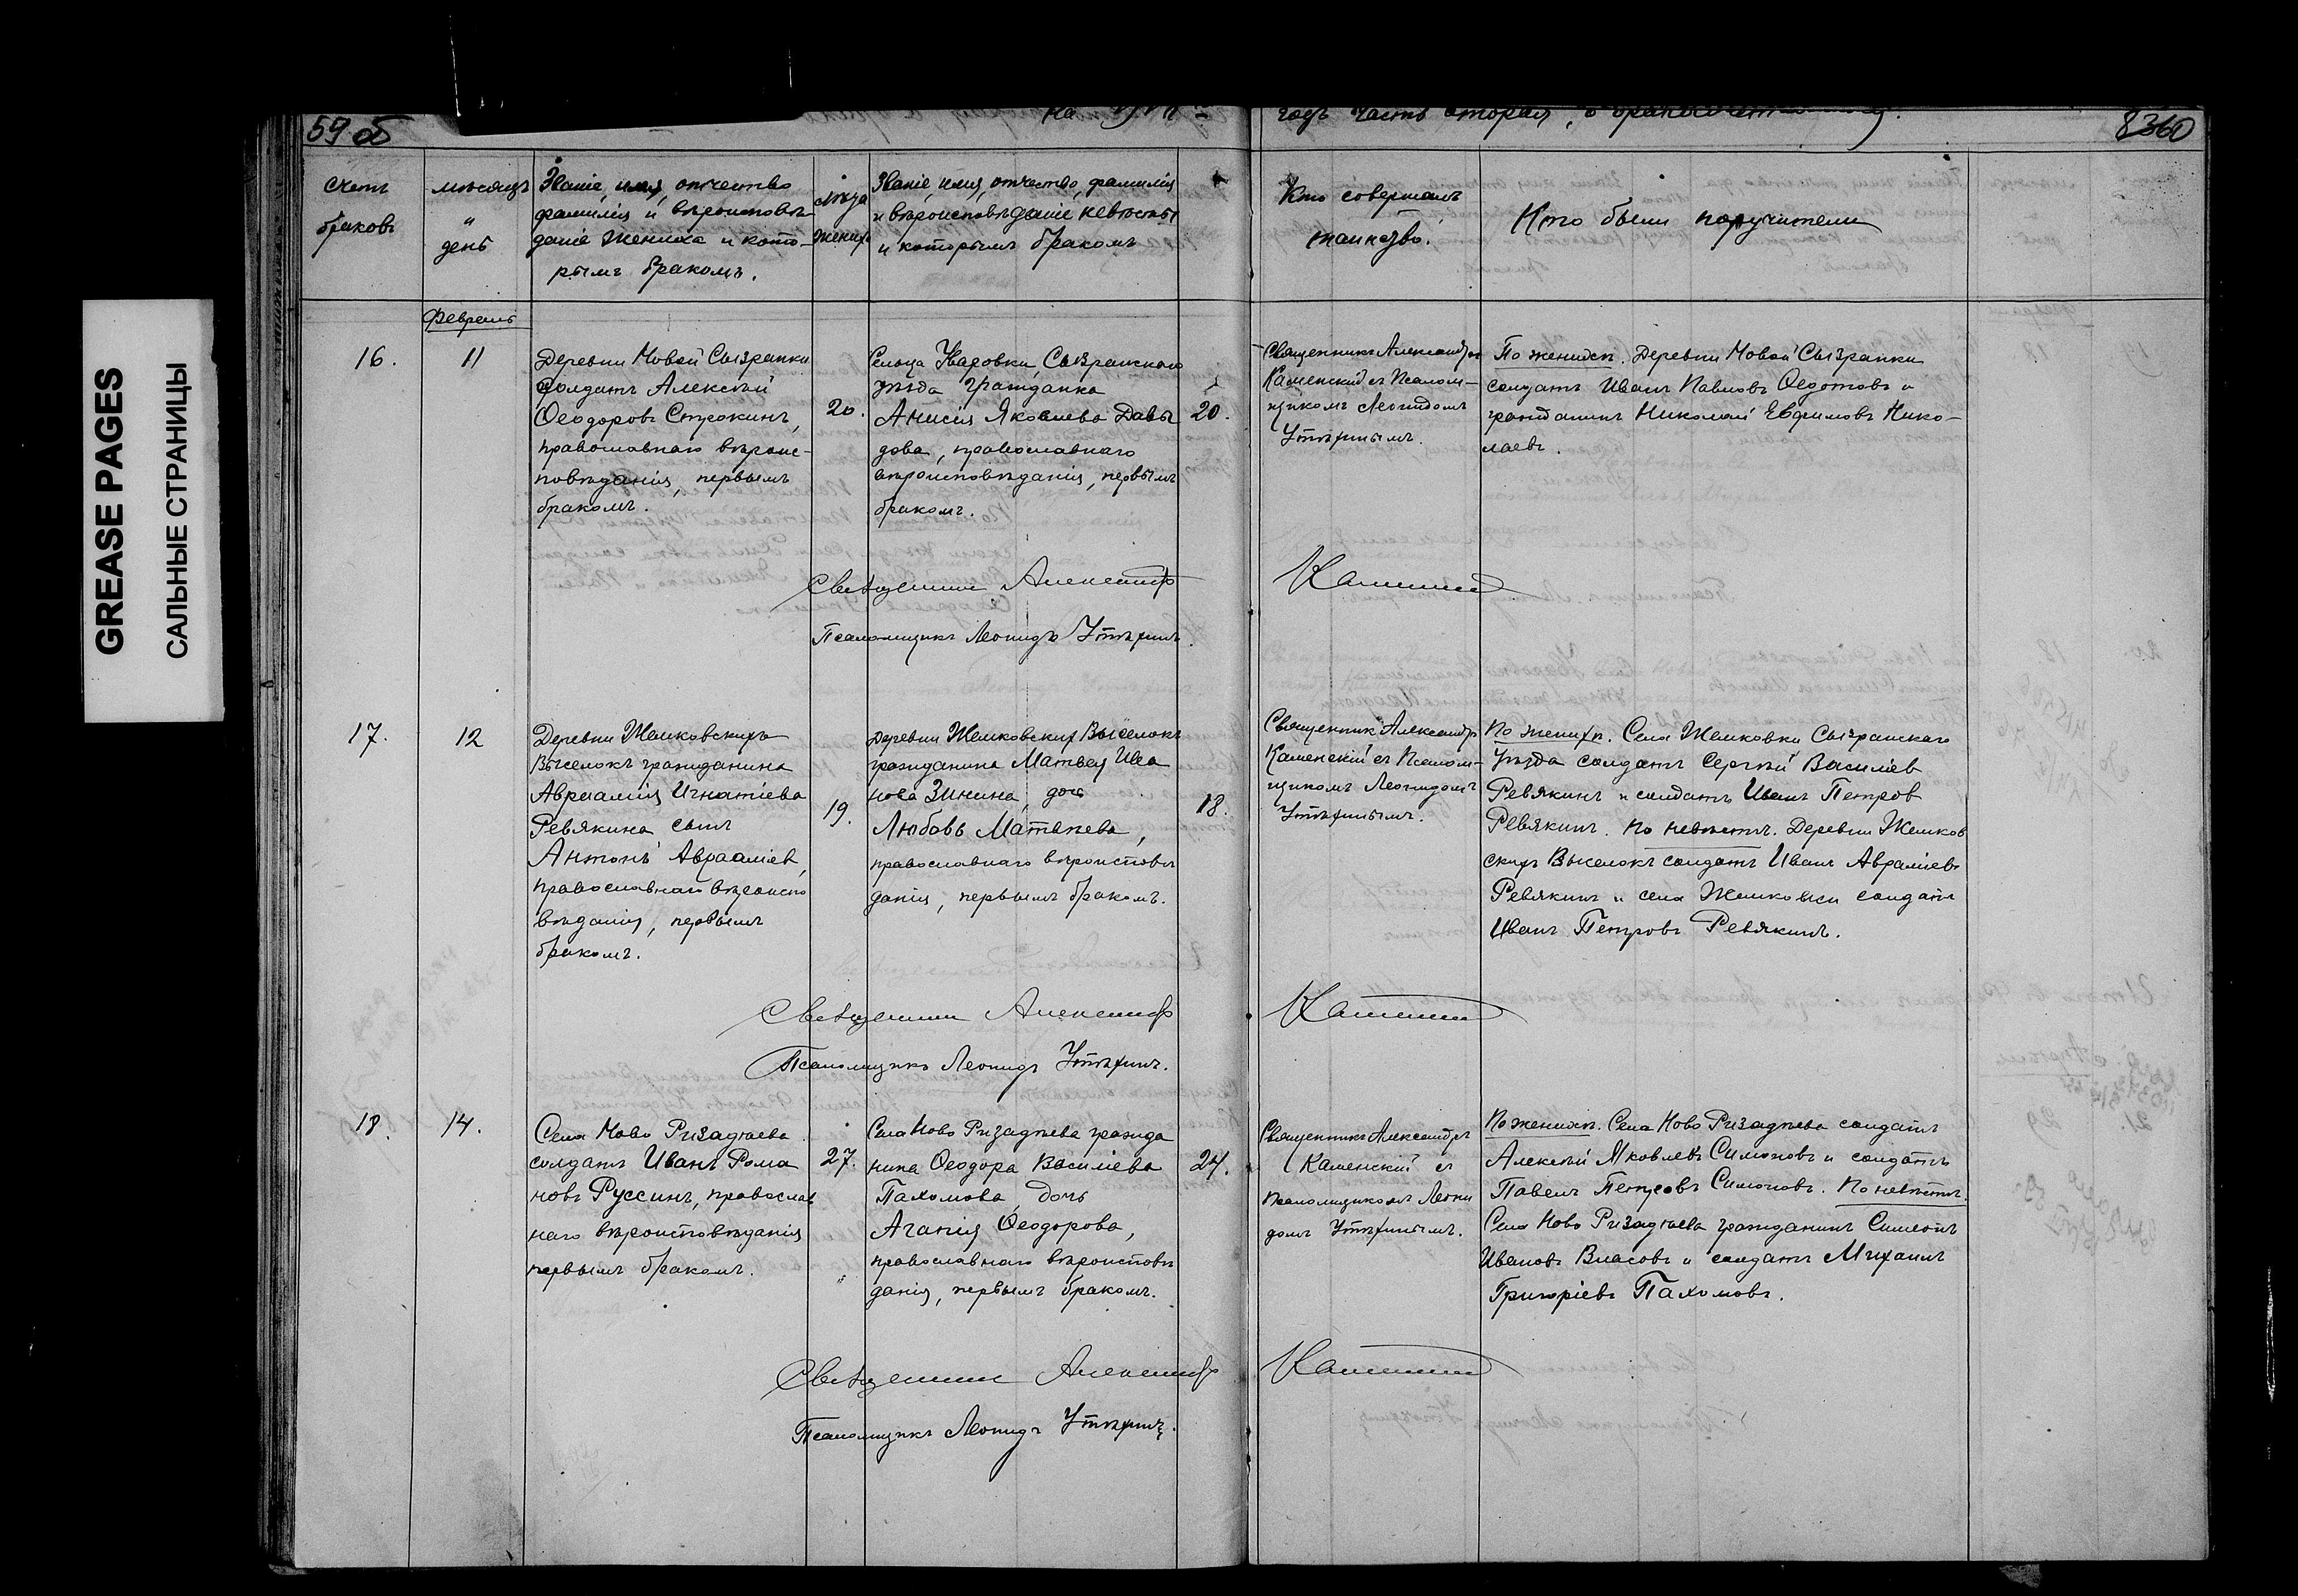 GREASE PAGES
САЛЬНЫЕ СТРАНИЦЫ
59 об
на
годъ часть вторая, о
8360
Счетъ
браковъ
мѣсяцъ
и
день
Званіе, имя, отчество
фамилія и вѣроисповѣ-
даніе жениха и кото-
рымъ бракомъ.
лѣта
жениха
Званіе, имя, отчество, фамилія
и вѣроисповѣданіе невѣсты
и которымъ бракомъ
Кто совершалъ
таинство.
Кто были поручители
Февраль
16.
11
Деревни Новой Сызранки
солдатъ Алексѣй
Ѳеодоровъ Строкинъ,
православнаго вѣроис-
повѣданія, первымъ
бракомъ.
20.
Сельца Уваровки, Сызранскаго
уѣзда гражданка
Анисія Яковлева Давы
дова, православнаго
вѣроисповѣданія, первымъ
бракомъ.
20.
Священникъ Александръ
Каменскій съ Псалом-
щикомъ Леонидомъ
Утѣхинымъ.
По женихѣ. Деревни Новой Сызранки
солдатъ Иванъ Павловъ Ѳедотовъ и
гражданинъ Николай Евфимовъ Нико-
лаевъ.
Священникъ Александръ
Каменскій
Псаломщикъ Леонидъ Утѣхинъ.
17.
12
Деревни Жемковскихъ
Выселокъ гражданина
Авраамія Игнатіева
Ревякина сынъ
Антонъ Авраамiев,
православнаго вѣроиспо
вѣданія, первымъ
бракомъ.
19.
деревни Жемковских Выселокъ
гражданина Матвея Ива
нова Зинина, доч
Любовь Матвѣева,
православнаго вѣроисповѣ
данія, первымъ бракомъ.
18.
Священникъ Александръ
Каменскій съ Псалом-
щикомъ Леонидомъ
Утѣхинымъ.
По женихѣ. Села Жемковки Сызранскаго
уѣзда солдатъ Сергѣй Василіев
Ревякинъ и солдатъ Иванъ Петров
Ревякинъ. По невѣстѣ. Деревни Жемков
скихъ Выселокъ солдатъ Иванъ Авраміевъ
Ревякинъ и села Жемковки солдатъ
Иванъ Петровъ Ревякинъ.
Священникъ Александръ
Каменскій
Псаломщикъ Леонидъ Утѣхинъ.
18.
14.
Села Ново Ризадѣева
солдатъ Иванъ Рома
новъ Руссинъ, православ
наго вѣроисповѣданія
первымъ бракомъ.
27.
Села Ново Ризадѣева гражда
нина Ѳеодора Василіева
Пахомова, дочь
Агапія Ѳеодорова,
православнаго вѣроисповѣ
данія, первымъ бракомъ.
24.
Священникъ Александръ
Каменскій съ
псаломщикомъ Леони
домъ Утѣхинымъ.
По женихѣ. Села Ново Ризадѣева солдатъ
Алексѣй Яковлевъ Симоновъ и солдатъ
Павелъ Петровъ Симоновъ. По невѣстѣ.
Села Ново Ризадѣева гражданинъ Симеонъ
Ивановъ Власовъ и солдатъ Михаилъ
Григоріевъ Пахомовъ.
Священникъ Александръ
Каменскій
Псаломщикъ Леонидъ Утѣхинъ.